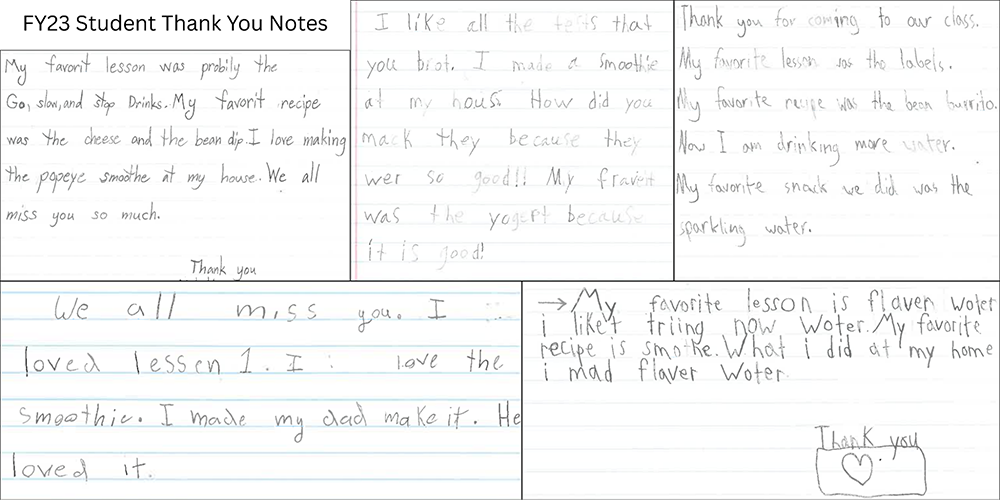 FY23 Student Thank You Notes
My favorit lesson was probily the
Go, slow, and stop Drinks. My favorit recipe
was the cheese and the bean dip. I love making
the popeye smoothe at my house. We all
miss you so much.
Thank you
I like all the tests that
you brot. I made a smoothie
at my hous. How did you
mack they because they
wer so good!! My fravert
was the yogert because
it is good!
Thank you for coming to our class.
My favorite lesson was the labels.
My favorite recipe was the bean burrito.
Now I am drinking more water.
My favorite snack we did was the
sparkling water.
We all miss you. I
loved lessen 1. I love the
smoothie. I made my dad make it. He
loved it.
→ My favorite lesson is flaver woter
i like't triing now woter. My favorite
recipe is smothe. What i did at my home
i mad flaver woter.
Thank you.